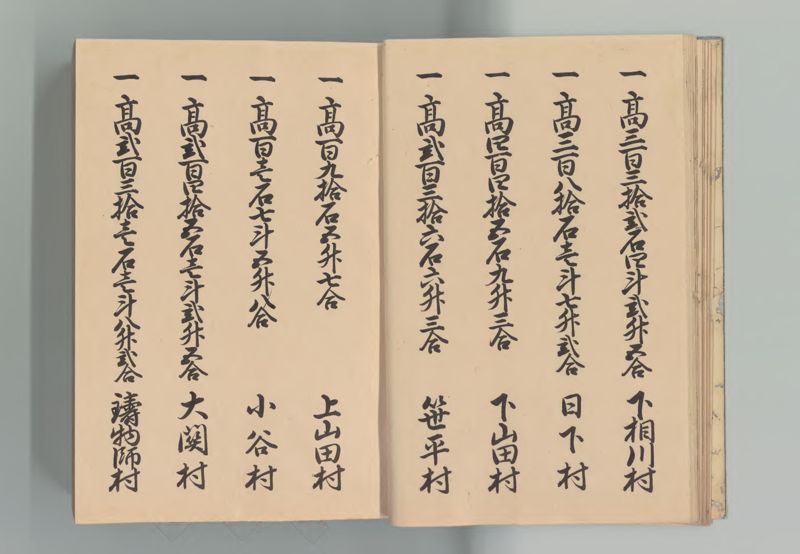 一髙三百三拾弐石四斗弐升五合　下相川村
一髙三百八拾石壱斗七升弐合　日下村
一髙四百四拾五石九升三合　下山田村
一髙弐百三拾六石六升三合　笹平村
一髙百九拾石五升七合　上山田村
一髙百壱石七斗五升八合　小谷村
一髙弐百四拾五石壱斗弐升五合　大関村
一髙弐百三拾壱石壱斗八升弐合　鋳物師村